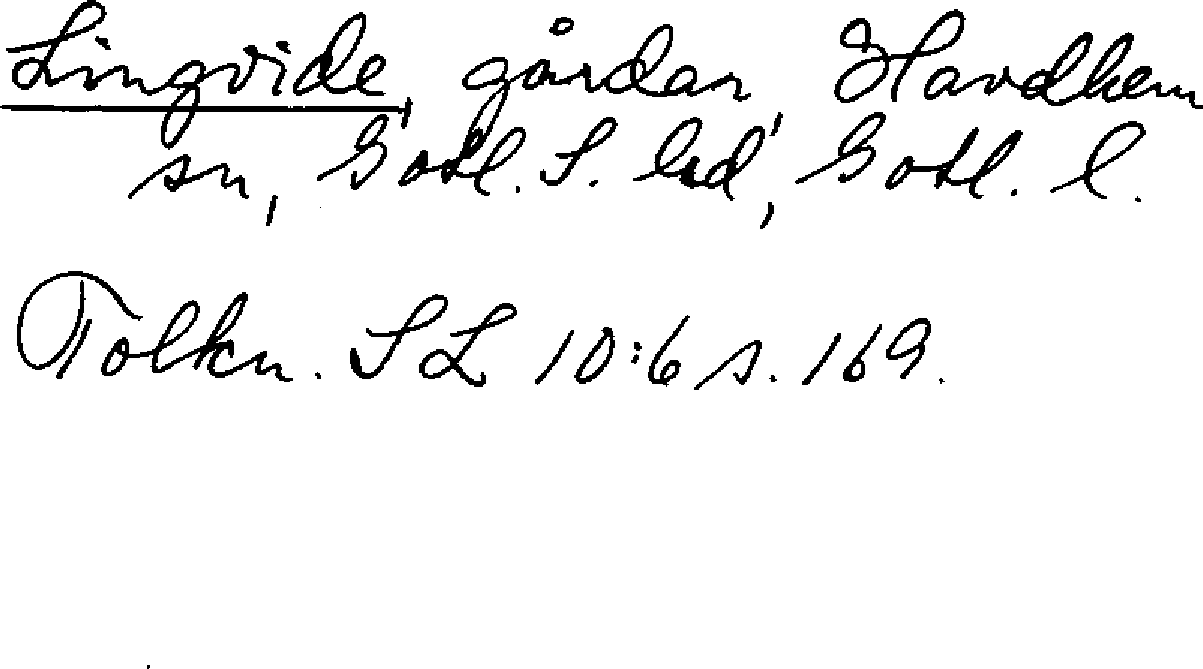 Lingvide, gårdar, Havdhem
sn, Gotl. S. hd, Gotl. l.
Tolkn. SL 10:6 s. 169.